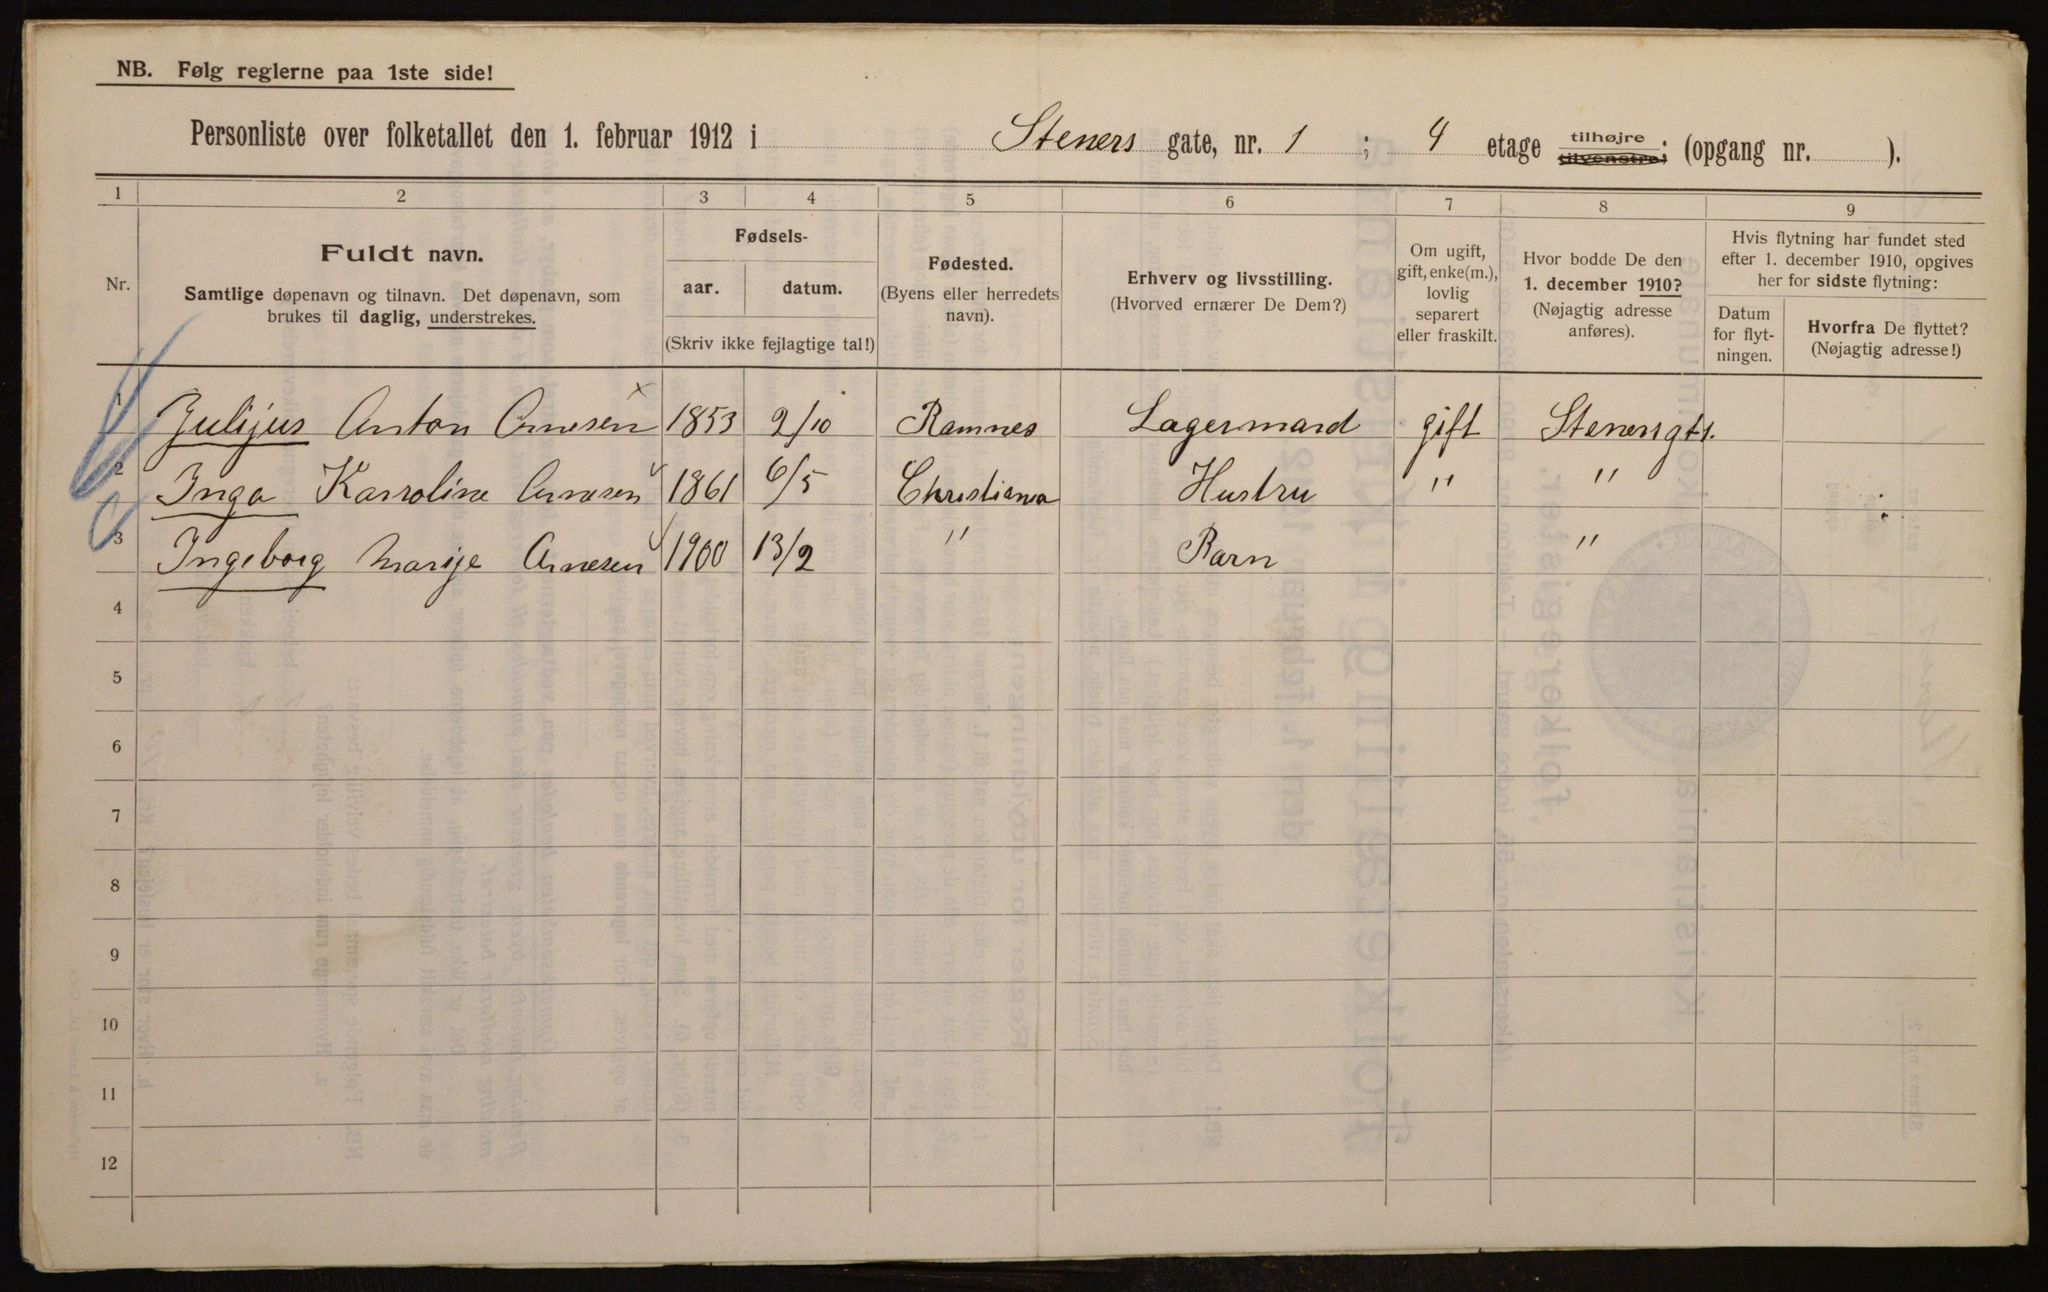 NB. Følg reglerne paa 1ste side!
Personliste over folketallet den 1. februar 1912 i Steners gate, nr. 1 ; 4 etage tilhøjre tilvenstre; (opgang nr. ).
1 2 3 4 5 6 7 8 9
Nr.
Fuldt navn.
Samtlige døpenavn og tilnavn. Det døpenavn, som
brukes til daglig, understrekes.
Fødsels-
aar. datum.
(Skriv ikke fejlagtige tal!)
Fødested.
(Byens eller herredets
navn).
Erhverv og livsstilling.
(Hvorved ernærer De Dem?)
Om ugift,
gift, enke(m.),
lovlig
separert
eller fraskilt.
Hvor bodde De den
1. december 1910?
(Nøjagtig adresse
anføres).
Hvis flytning har fundet sted
efter 1. december 1910, opgives
her for sidste flytning:
Datum
for flyt-
ningen.
Hvorfra De flyttet?
(Nøjagtig adresse!)
1 Julijus Anton Arnesen 1853 2/10 Ramnes Lagermand gift Stenersgt 1.
2 Inga Karroline Arnesen 1861 6/5 Christiania Hustru " "
3 Ingeborg Marije Arnesen 1900 13/2 " Barn "
4
5
6
7
8
9
10
11
12